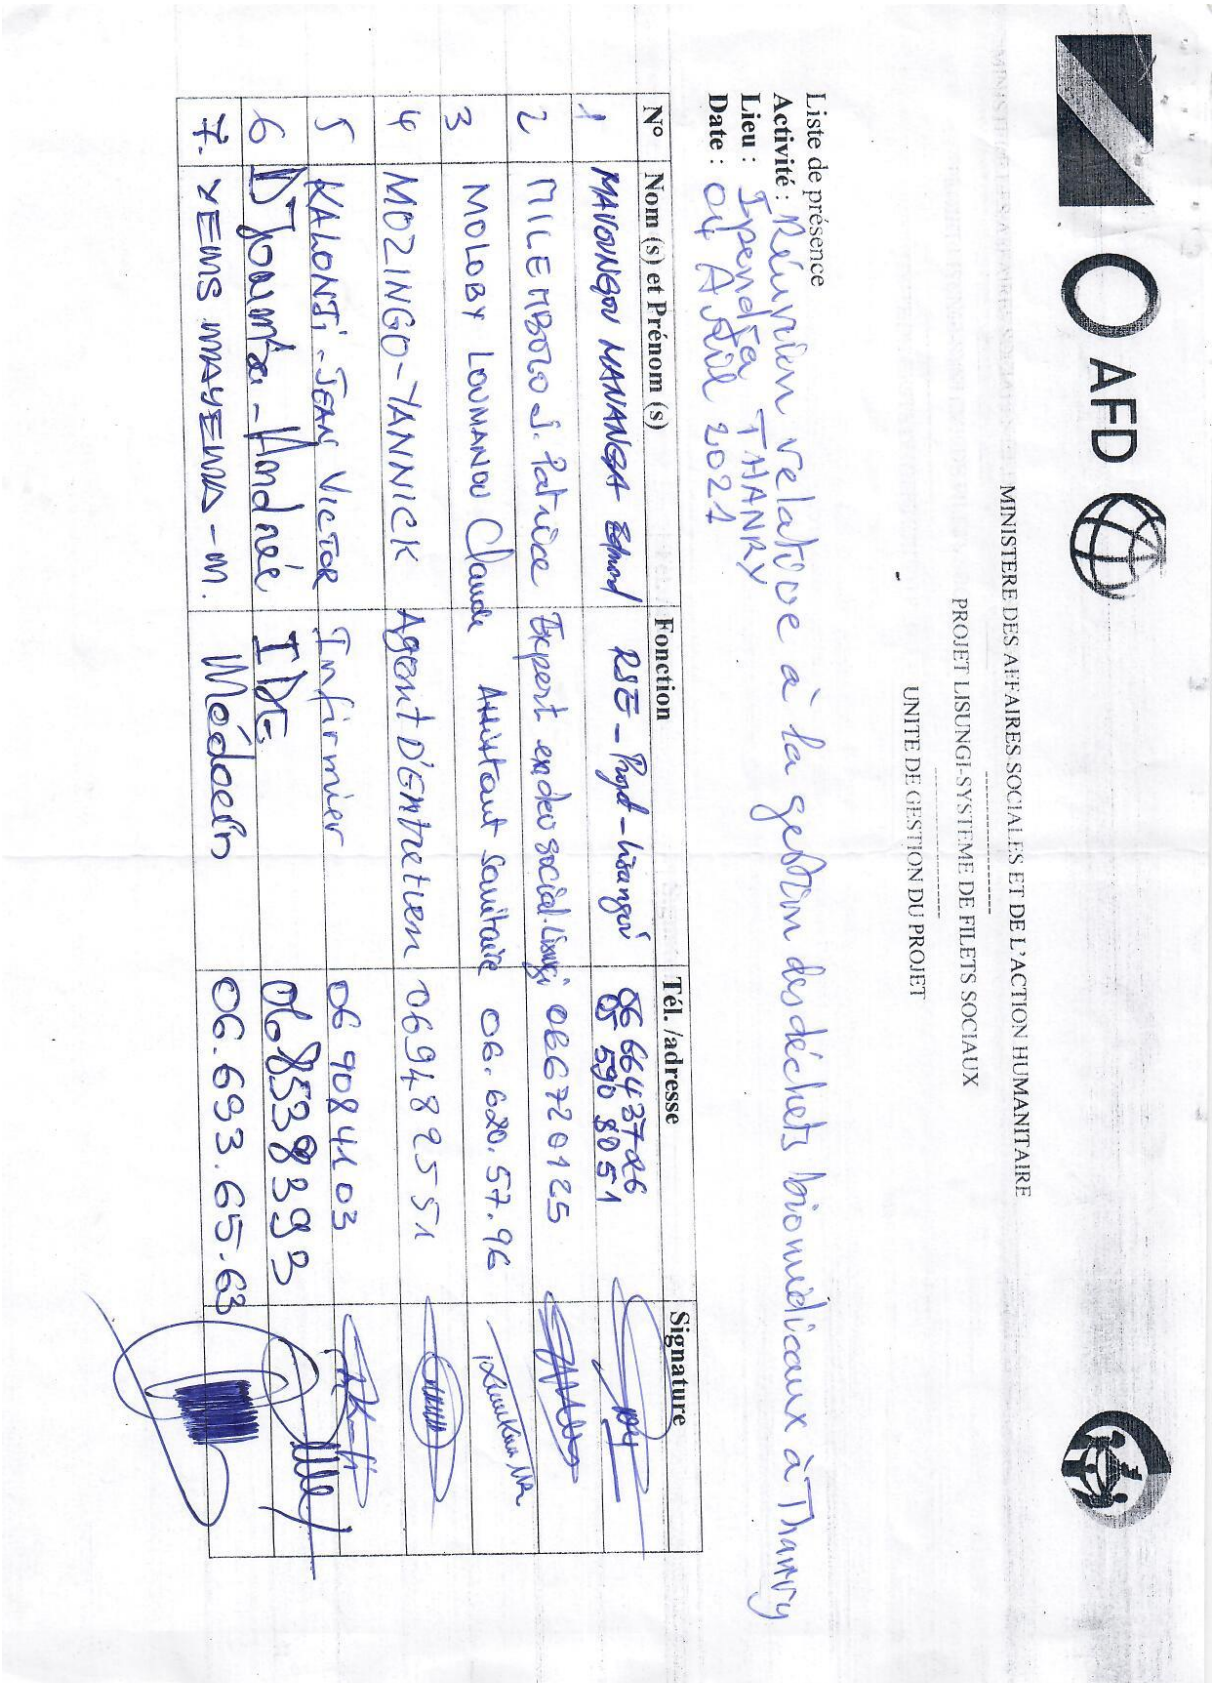 AFD
MINISTERE DES AFFAIRES SOCIALES ET DE L'ACTION HUMANITAIRE
PROJET LISUNGI-SYSTEME DE FILETS SOCIAUX
UNITE DE GESTION DU PROJET
Liste de présence
Activité : Réunion relative à la gestion des déchets biomédicaux à Thanry
Lieu : Ipendja THANRY
Date : 04 Avril 2021
N° Nom (s) et Prénom (s) Fonction Tél. /adresse Signature
1 MAVOUNGOU MANANGA Edmond RSE - Projet - Lisungi 06 664 37 26 05 590 8051
2 MILEMBOLO J. Patrice Expert en dev social. Lisungi 066720125
3 MOLOBY LOUMANOU Claude Assistant Sanitaire 06.620.57.96
4 MOZINGO-YANNICK Agent D'Entretien 069489551
5 KALONJI-JEAN VICTOR Infirmier 06 908 41 03
6 DJoumba-André IDE 068538393
7. YEMS MAYEMA-M. Médecin 06.693.65.63